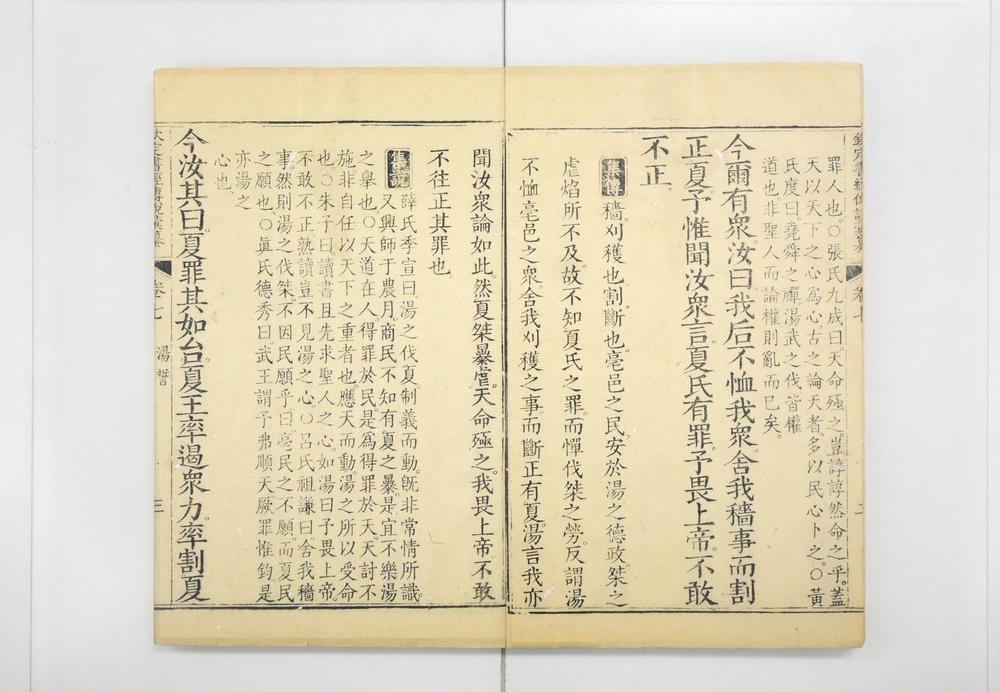 罪人也。○張氏九成曰天命殛之。豈諄諄然命之乎。蓋
天以天下之心爲心。古之論天者。多以民心卜之。○黃
氏度曰。堯舜之禪。湯武之伐。皆權
道也。非聖人而論權。則亂而已矣。
今爾有衆。汝曰我后不恤我衆。舍我穡事而割
正夏。予惟聞汝衆言。夏氏有罪。予畏上帝。不敢
不正。
集傳 穡。刈穫也。割。斷也。亳邑之民。安於湯之德政。桀之
虐焰所不及。故不知夏氏之罪。而憚伐桀之勞。反謂湯
不恤亳邑之衆。舍我刈穫之事。而斷正有夏。湯言我亦
卷七
二
聞汝衆論如此。然夏桀暴虐。天命殛之。我畏上帝。不敢
不往正其罪也。
集說 薛氏季宣曰。湯之伐夏。制義而動。旣非常情所識。
又興師於農月。商民不知有夏之暴。是宜不樂湯
之舉也。○天道在人。得罪於民。是爲得罪於天。天討不
施。非自任以天下之重者也。應天而動。湯之所以受命
也。○朱子曰。讀書且先求聖人之心。如湯曰予畏上帝。
不敢不正。熟讀豈不見湯之心。○呂氏祖謙曰。舍我穡
事。然則湯之伐桀。不因民願乎。曰。亳民之不願。而夏民
之願也。○眞氏德秀曰。武王謂予弗順天。厥罪惟鈞。是
亦湯之
心也。
今汝其曰夏罪其如台。夏王率遏衆力。率割夏
欽定書經傳說彙纂
卷七
湯誓
三